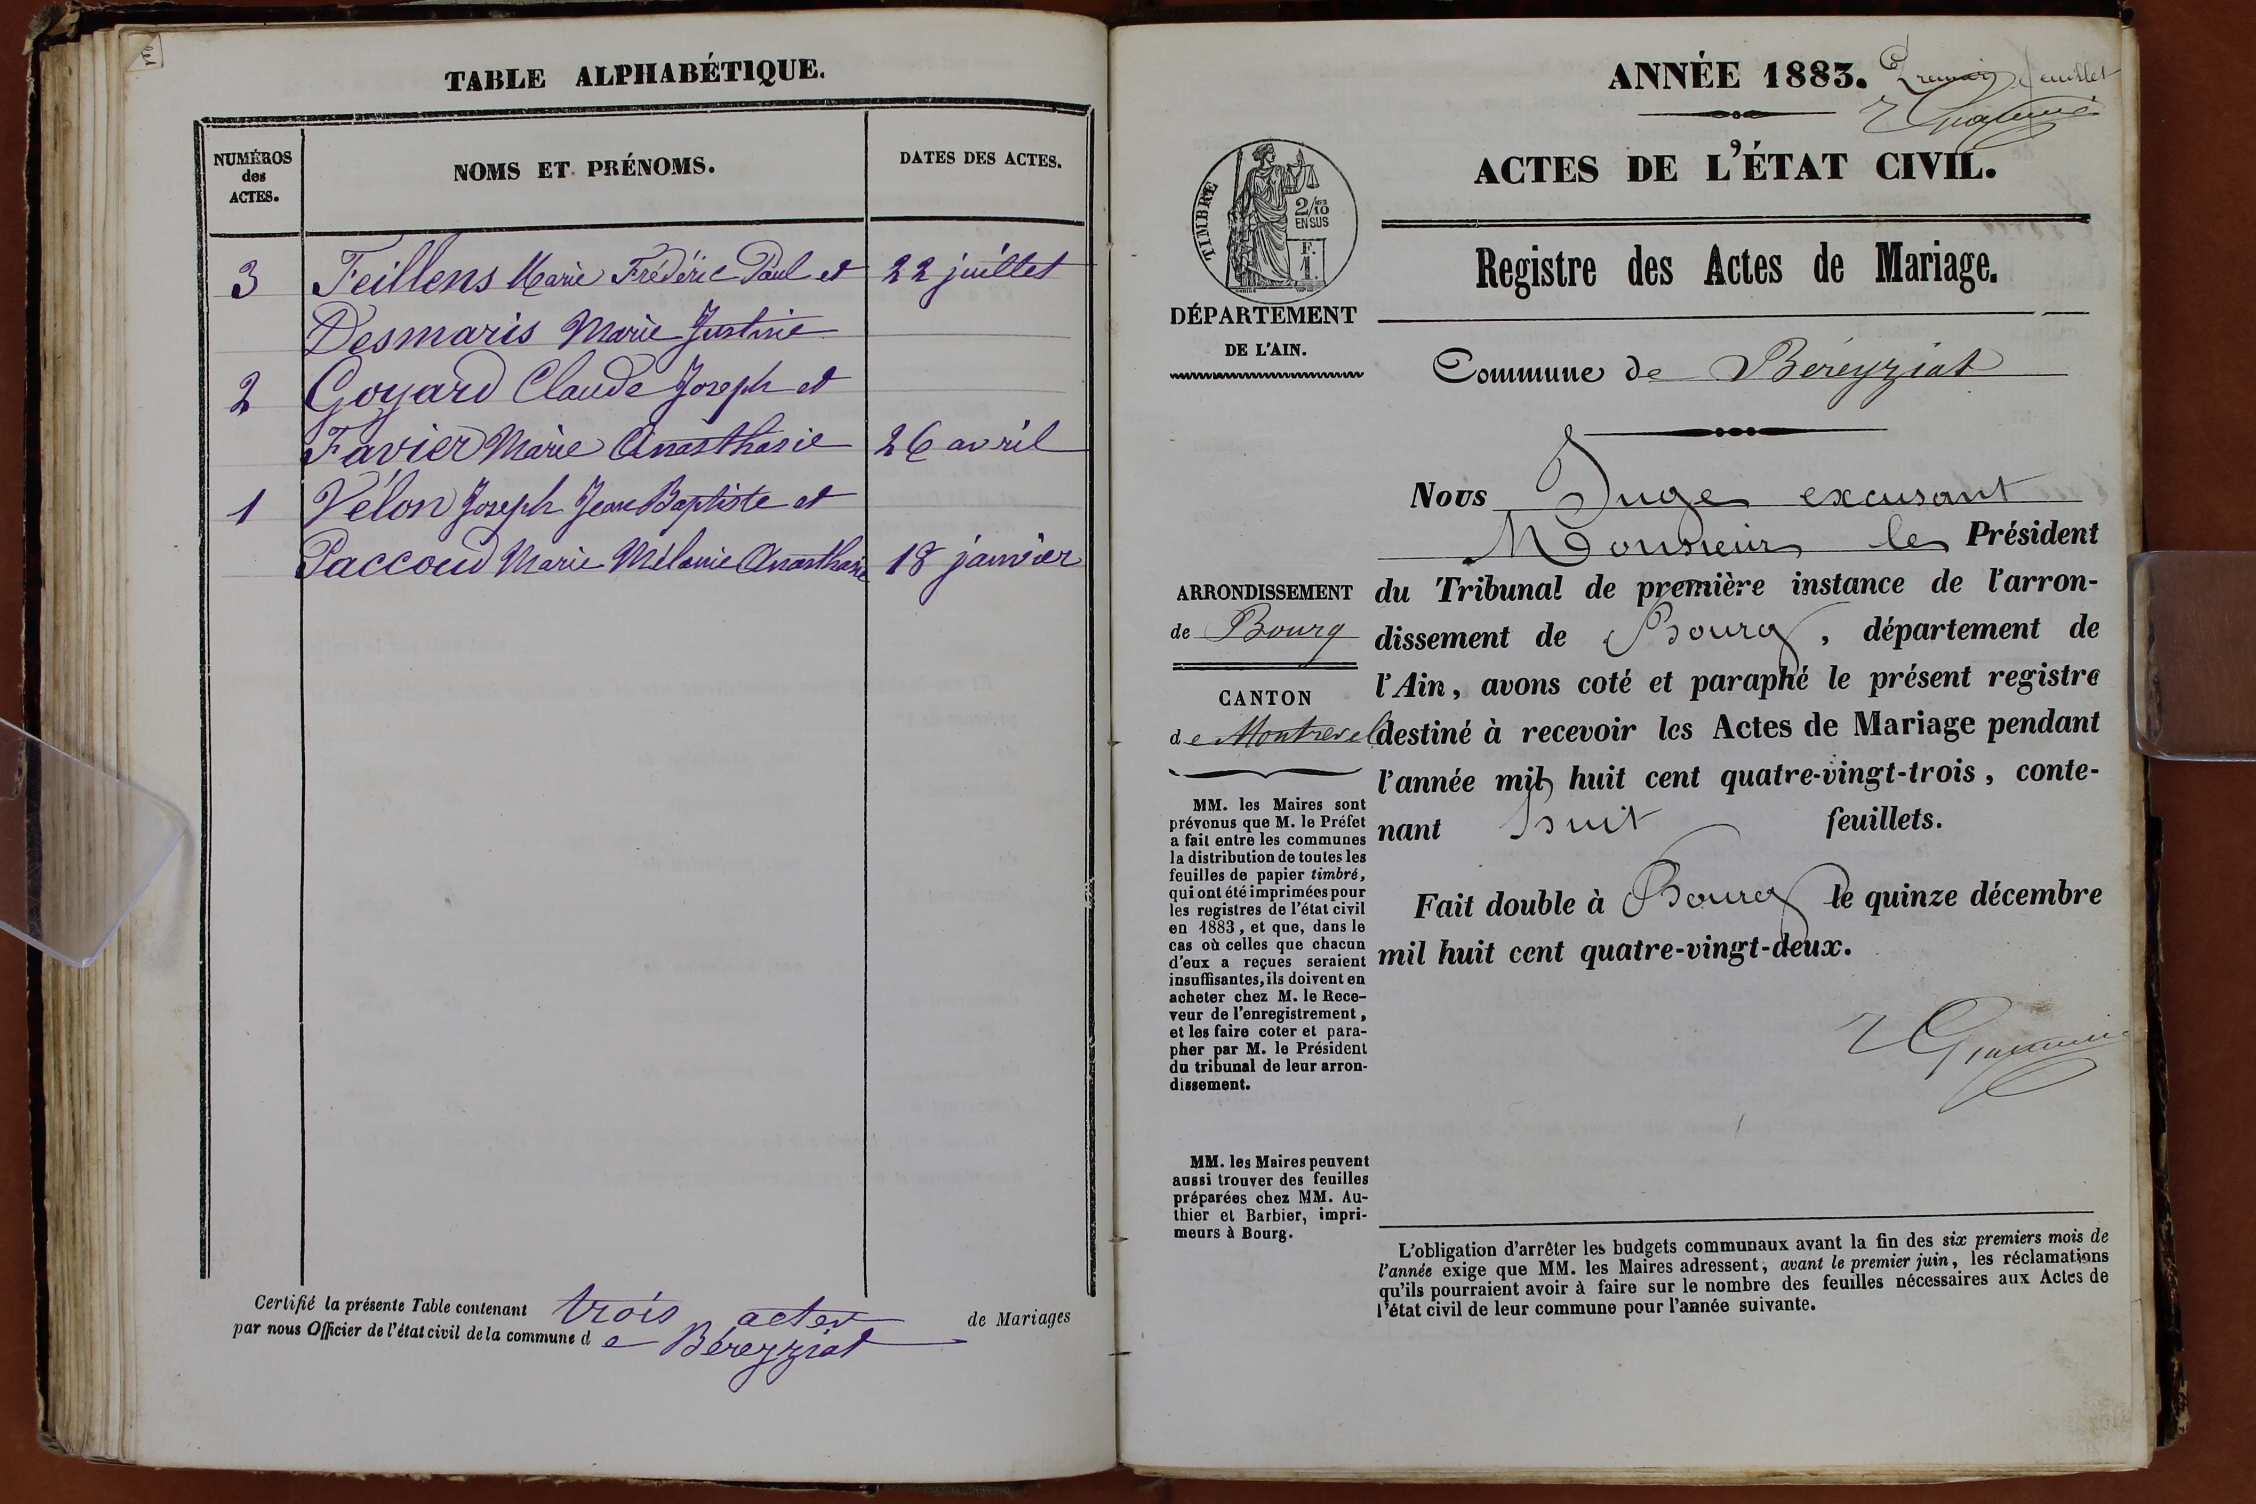 TABLE ALPHABÉTIQUE.
NUMÉROS
des
ACTES.
NOMS ET PRÉNOMS.
DATES DES ACTES.
3 Feillens Marie Frédéric Paul et 22 juillet
Desmaris Marie Justine
2 Goyard Claude Joseph et
Favier Marie Anasthasie 26 avril
1 Vélon Joseph Jean Baptiste et
Paccoud Marie Mélanie Anasthasie 18 janvier
Certifié la présente Table contenant trois actes de Mariages
par nous Officier de l'état civil de la commune de Béreyziat
ANNÉE 1883.
Premier feuillet
ACTES DE L'ÉTAT CIVIL.
TIMBRE
2/10
EN SUS
F.
1.
Registre des Actes de Mariage.
DÉPARTEMENT
DE L'AIN.
Commune de Béreyziat
Nous Juge excusant
Monsieur le Président
du Tribunal de première instance de l'arron-
dissement de Bourg, département de
l'Ain, avons coté et paraphé le présent registre
destiné à recevoir les Actes de Mariage pendant
l'année mil huit cent quatre-vingt-trois, conte-
nant huit feuillets.
Fait double à Bourg le quinze décembre
mil huit cent quatre-vingt-deux.
ARRONDISSEMENT
de Bourg
CANTON
de Montrevel
MM. les Maires sont
prévenus que M. le Préfet
a fait entre les communes
la distribution de toutes les
feuilles de papier timbré,
qui ont été imprimées pour
les registres de l'état civil
en 1883, et que, dans le
cas où celles que chacun
d'eux a reçues seraient
insuffisantes, ils doivent en
acheter chez M. le Rece-
veur de l'enregistrement,
et les faire coter et para-
pher par M. le Président
du tribunal de leur arron-
dissement.
MM. les Maires peuvent
aussi trouver des feuilles
préparées chez MM. Au-
thier et Barbier, impri-
meurs à Bourg.
L'obligation d'arrêter les budgets communaux avant la fin des six premiers mois de
l'année exige que MM. les Maires adressent, avant le premier juin, les réclamations
qu'ils pourraient avoir à faire sur le nombre des feuilles nécessaires aux Actes de
l'état civil de leur commune pour l'année suivante.